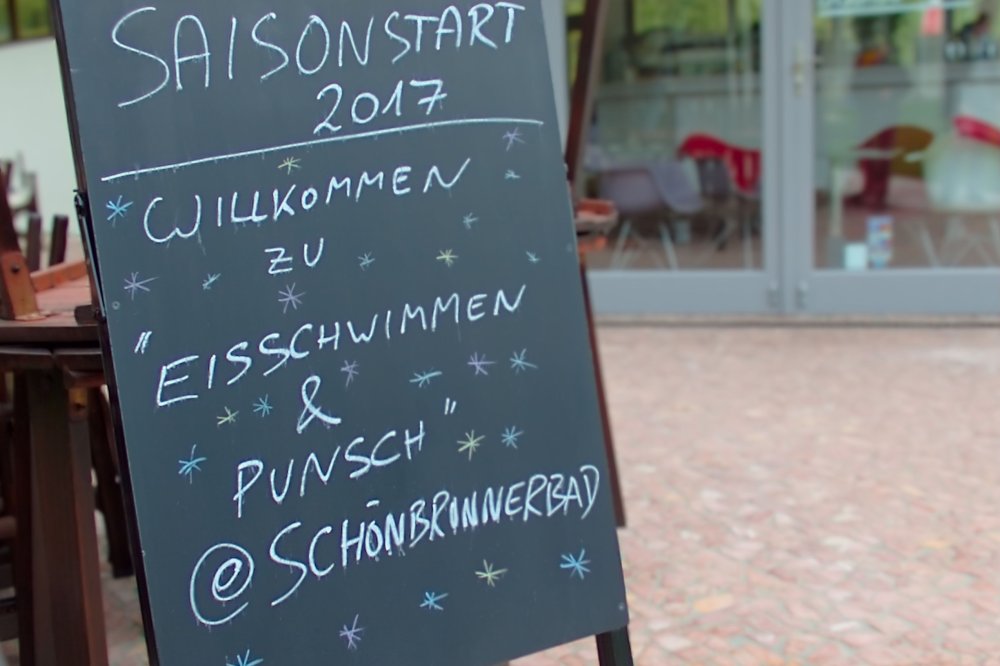 SAISONSTART
2017
WILLKOMMEN
ZU
"EISSCHWIMMEN
&
PUNSCH"
@SCHÖNBRUNNERBAD